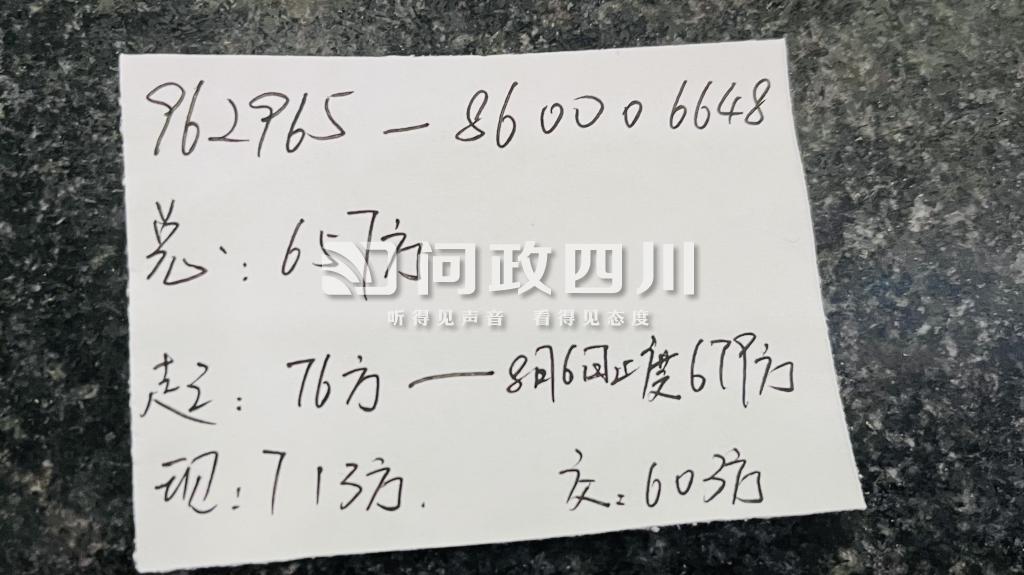 962965 — 860006648
总: 657方
问政四川
听得见声音 看得见态度
起: 76方 — 8月6日止度679方
现: 713方. 交: 603方